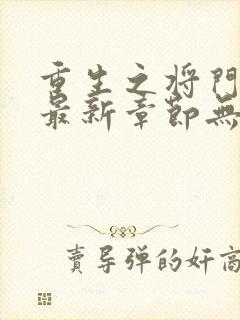 重生之将門
最新章節無
賣导弹的奸商